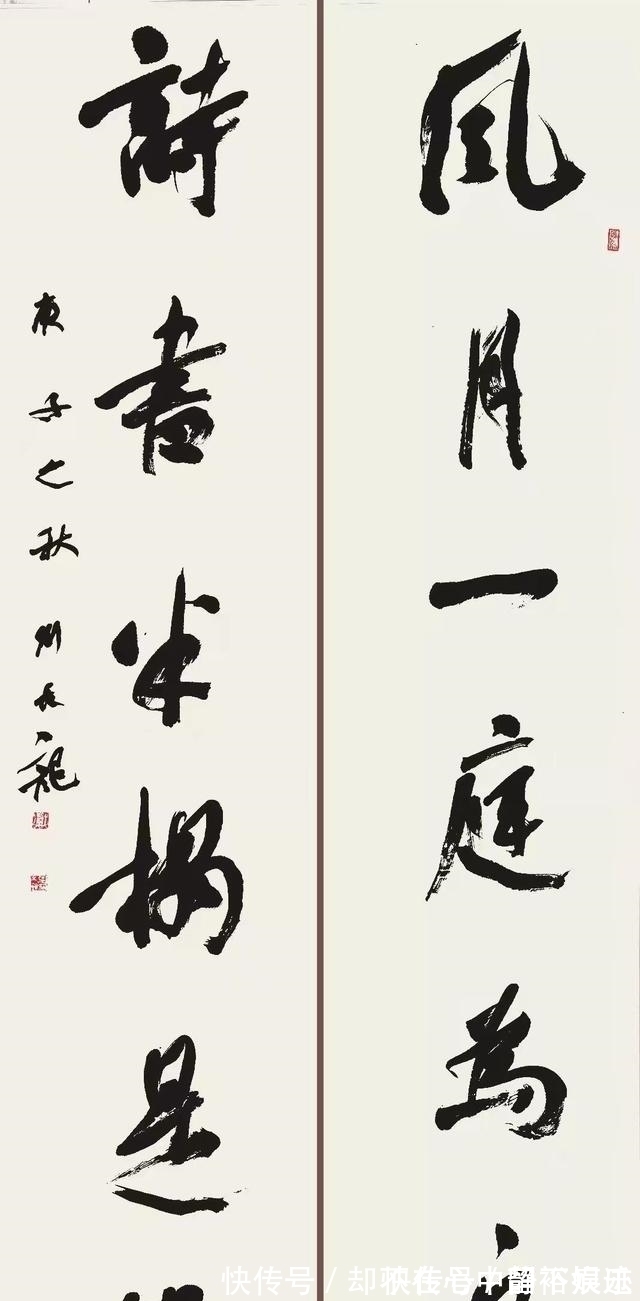 風月一庭為
詩書半榻是
庚子之秋 劉長龍
快传号